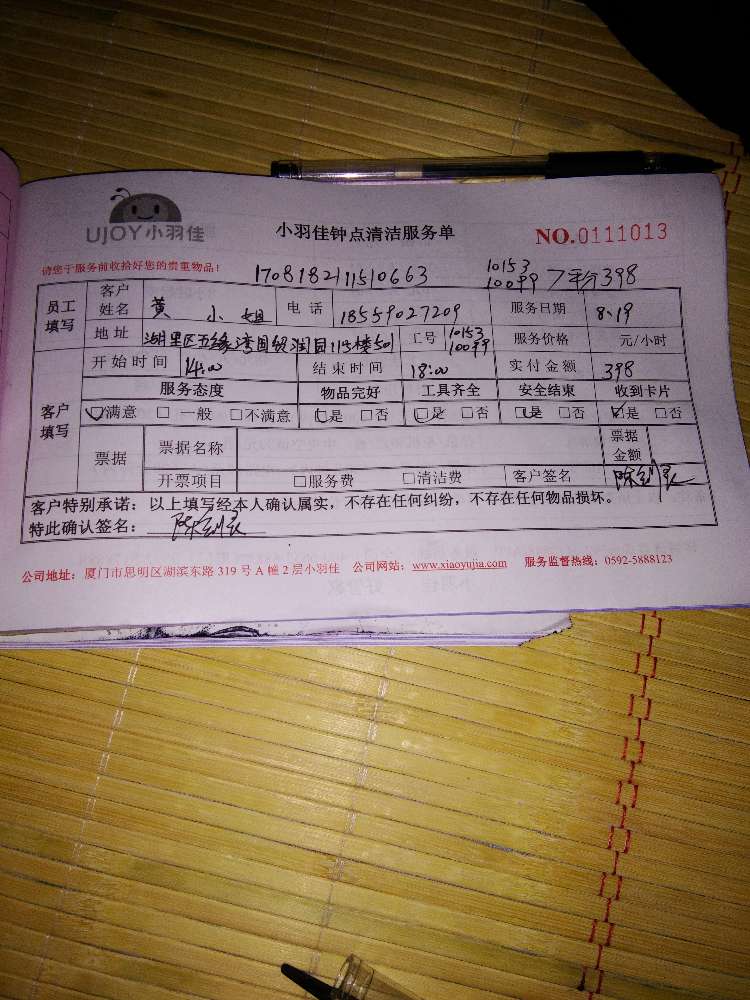 UJOY小羽佳
小羽佳钟点清洁服务单
NO.0111013
请您于服务前收拾好您的贵重物品！
1708182111510663
10153
10099 平分398
员工填写 客户姓名 黄小姐 电话 18559027209 服务日期 8.19
地址 湖里区五缘湾国贸润园11号楼501 工号 10153 10099 服务价格 元/小时
客户填写 开始时间 14:00 结束时间 18:00 实付金额 398
服务态度 物品完好 工具齐全 安全结束 收到卡片
☑满意 □一般 □不满意 ☑是 □否 ☑是 □否 ☑是 □否 ☑是 □否
票据 票据名称 票据金额
开票项目 □服务费 □清洁费 客户签名
客户特别承诺：以上填写经本人确认属实，不存在任何纠纷，不存在任何物品损坏。
特此确认签名：
公司地址：厦门市思明区湖滨东路 319 号 A 幢 2 层小羽佳 公司网站：www.xiaoyujia.com 服务监督热线：0592-5888123